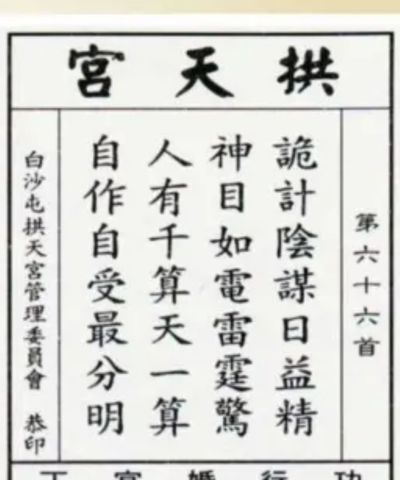 拱天宮
第六十六首
詭計陰謀日益精
神目如電雷霆驚
人有千算天一算
自作自受最分明
白沙屯拱天宮管理委員會 恭印
功 行 婚 官